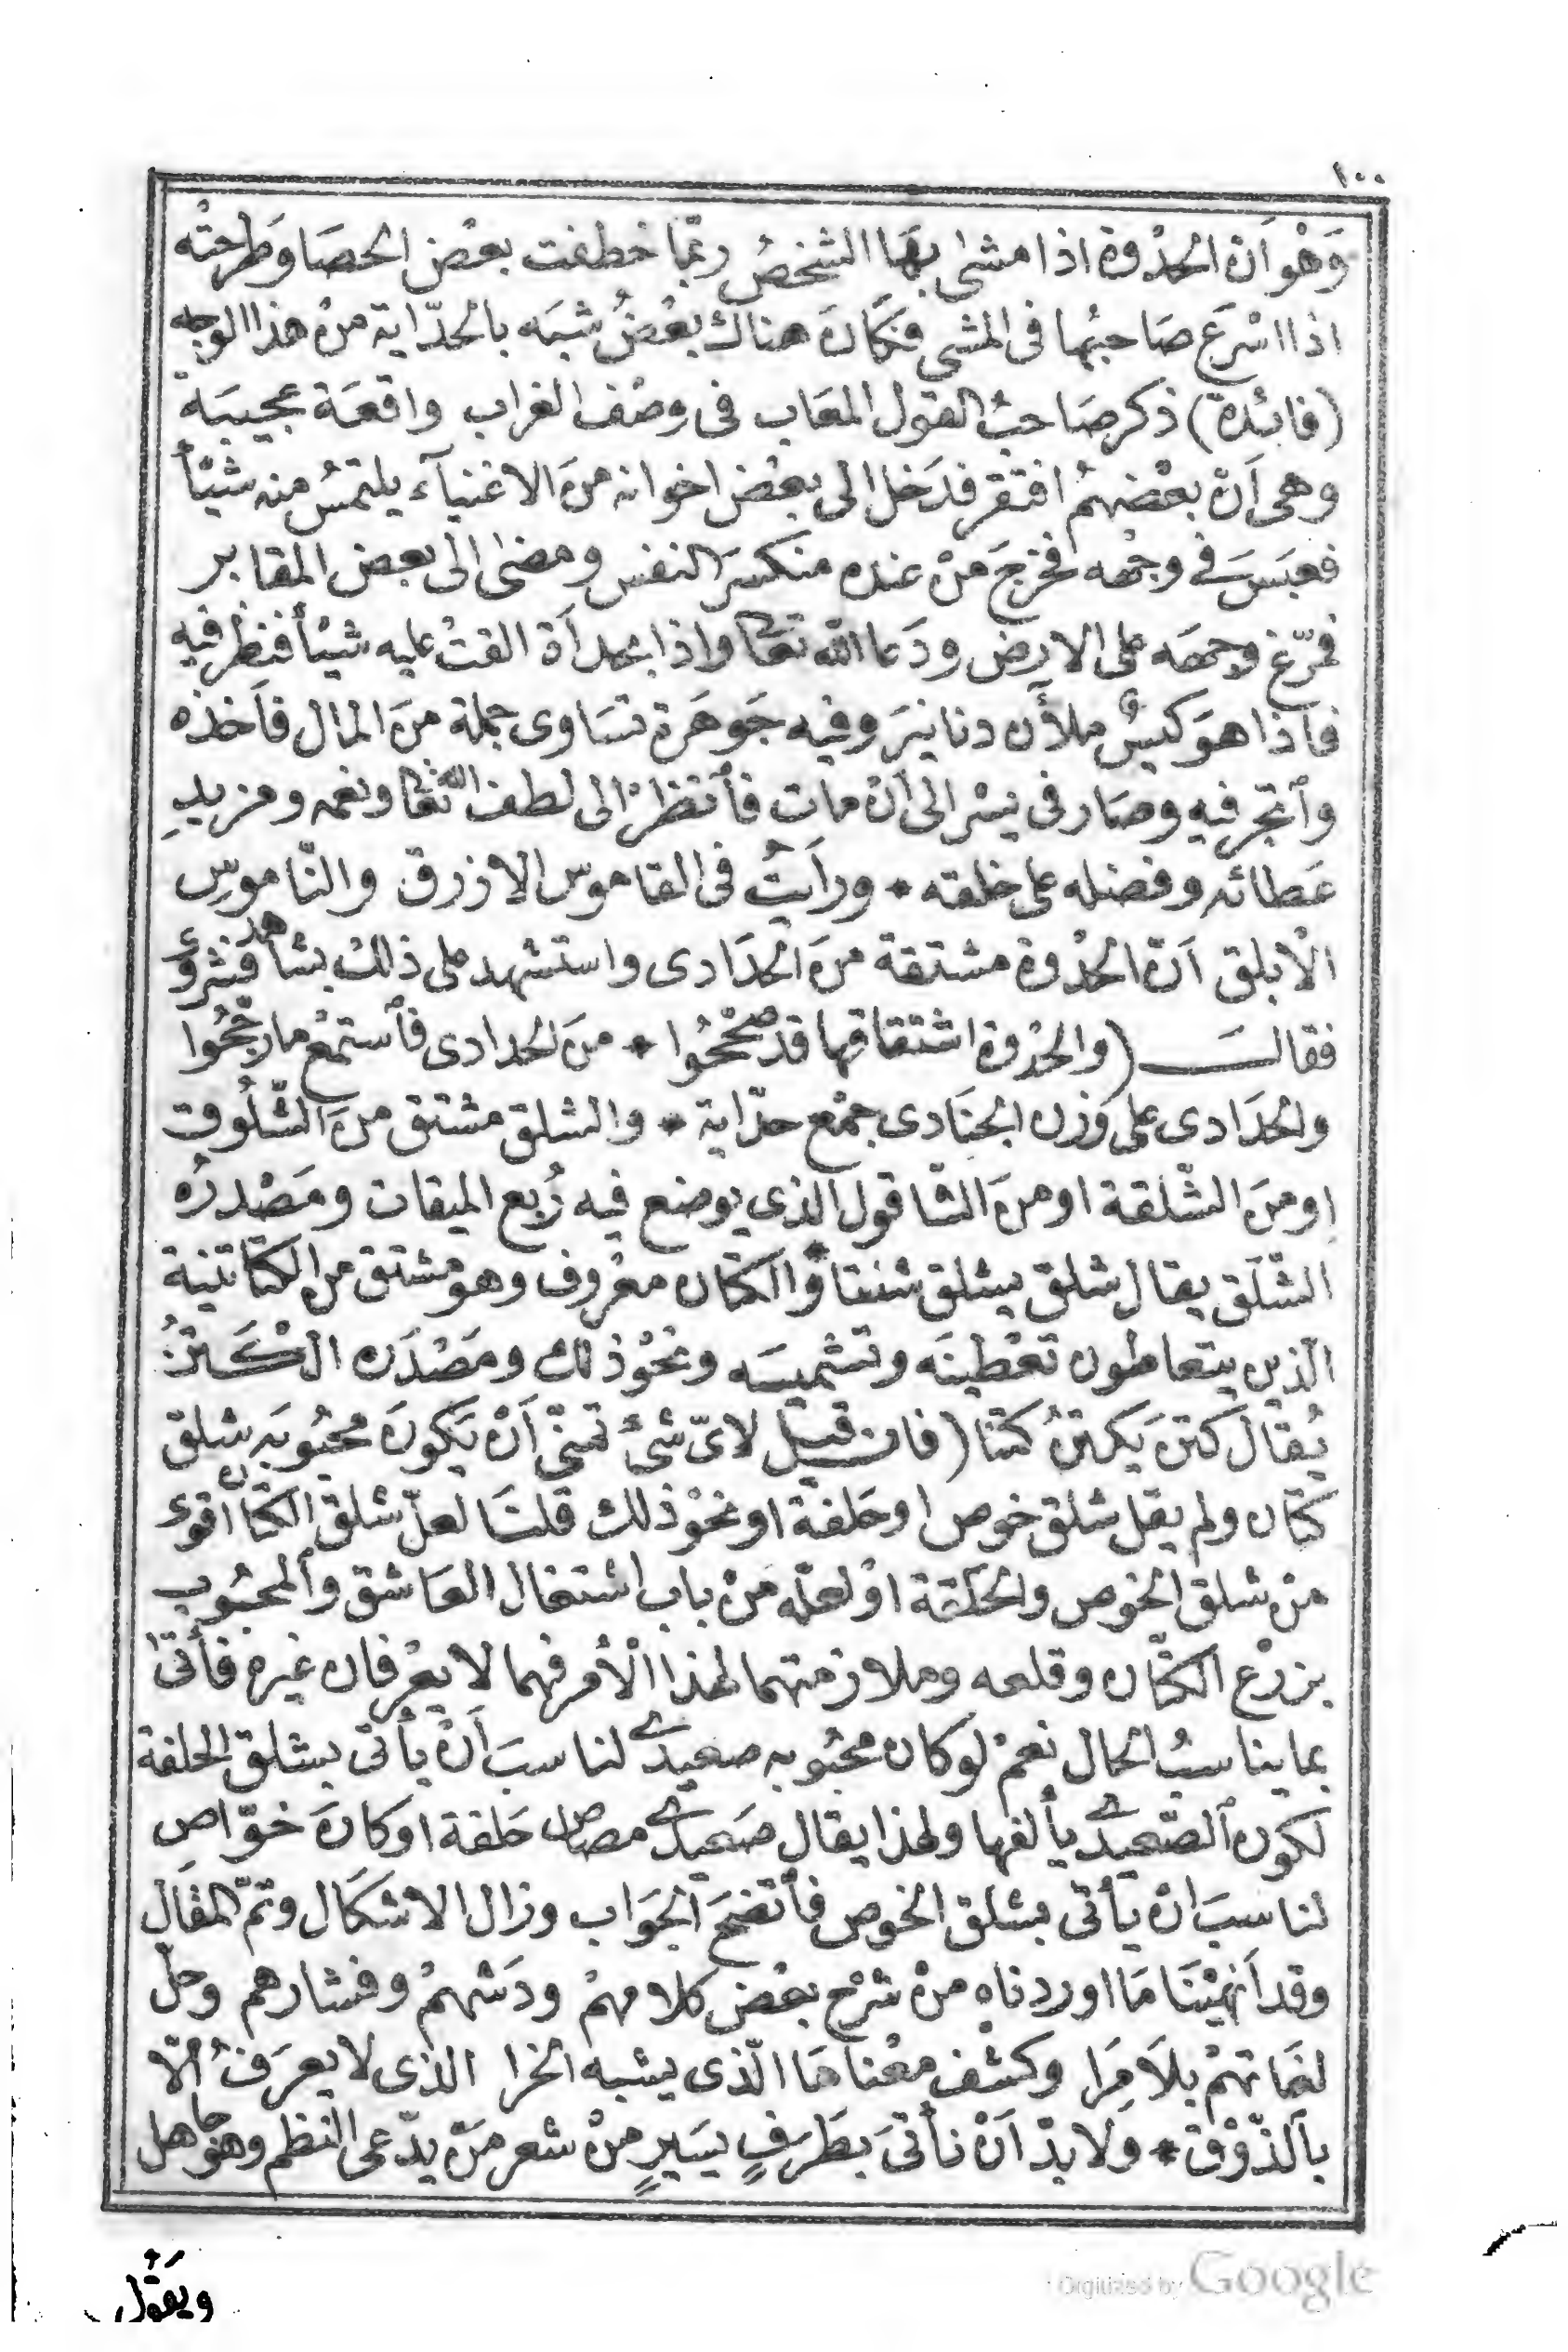 ١٠٠
وَهْوَ اَنّ الحُدْوة اذا مشى بهَا الشخصُ ربّما خطفت بعْض الحصَا وطرحتْه
اذا اسْرَع صَاحبُها فى المشى فكَانَ هناك بعْضُ شبَه بالحدّاية منْ هذا الوجه
(فائدة) ذكر صَاحبُ القول المعَاب فى وصْف الغراب واقعَة عجيبَة
وهى اَنّ بعْضهمُ افتقر فدَخل الى بعْض اخوانه منَ الاغنيآء يلتمسُ منه شيْأً
فعبَسَ فے وجْهه فخرجَ منْ عنده منكسرَ النفس ومضىٰ الىٰ بعض المقابر
فمرّغ وجهَه على الارض ودَعا الله تعَالى واذا بحدأة القتْ عليه شيْأ فنظر فيه
فاذا هوَ كيسٌ ملأن دنانيرَ وفيه جَوهَرة تسَاوى جملة منَ المال فاَخذه
وٱتّجر فيه وصَار فى يسْر الى اَنْ مات فٱنظرْ الى لطف الله تعَالى ونعمه ومزيدِ
عَطائه وفضله على خلقه * ورأيتُ فى القاموس الازرق والنّاموسِ
الاْبلق اَنّ الحدْوة مشتقة منَ الحدَادى واستشهد على ذلك بشاهد فشروىّ
فقالــــ (والحدْوة اشتقاقها قدْ صحّحُوا * منَ الحدادى فٱستمعْ ما رجّحُوا
والحدَادى على وَزن الجنَادى جمْع حدّاية * والشلق مشتق منَ الشّلُوق
او منَ الشّلقة او منَ الشّاقول الذى يوضع فيه رُبع الميقات ومَصْدرُه
الشّلَق يقال شلق يشلق شلقا * والكتّان معْروف وهو مشتق من الكتّاتنية
الّذين يتعاطون تعْطينَه وتشْميسَه ونحْوُ ذلك ومَصْدَره الْكَتنُ
يُقالَ كتن يَكتنُ كتْنا (فان قيل لاىّ شئ تمنّى اَنْ يَكونَ محبُوبَه شلق
كتّان ولم يقل شلق خوص او حَلفة او نحوْ ذلك قلنَا لعلّ شلق الكتّان أقوى
منْ شلق الخوص والحَلفة اوْ لعلّه منْ باب اشتغال العَاشق وٱلمحبُوب
بزرْع الكتّان وقلعه وملازمتهما لهذا الْأمر فهما لا يعْرفان غيره فأتىٰ
بما يناسبُ الحال نعمْ لوْ كان محبُوبه صعيدىّ لناسبَ اَنْ يأتى بشلق الحلفة
لكون ٱلصّعيدىّ يألفها ولهذا يقال صَعيدىّ مصاص حَلفة او كانَ خوّاص
لناسبَ انْ يَأتى بشلق الخوص فٱتضحَ ٱلجَوَاب وزال الاشكَال وتمّ المقَال
وقد اَنهيْنَا مَا اوردناهِ منْ شرْح بعْض كلامهمْ ودَشْهمْ وفشارهم وحلّ
لغَاتهمْ بلاَ مِرَا وكشْف معْناهَا الّذى يشبه الخرا الذى لا يعرَفُ الّا
بٱلذّوْق * وَلا بدّ اَنْ نأتىَ بطَرفٍ يسَيرٍ منْ شعر مَنْ يدّعى النظم وهوَ جاهل
ويَقوُل